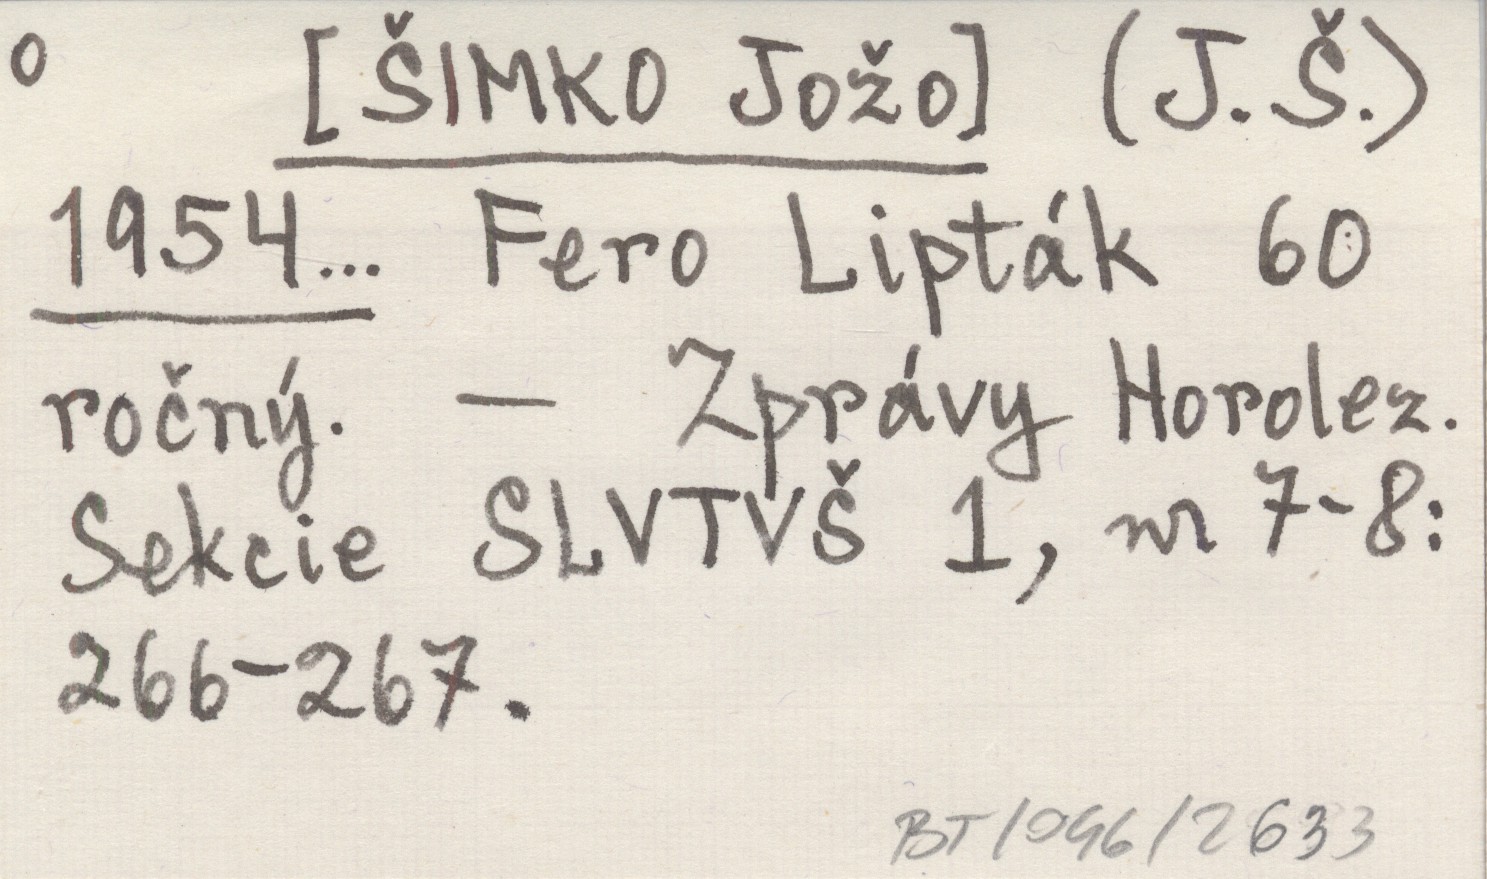 o [ŠIMKO Jožo] (J.Š.)
1954... Fero Lipták 60
ročný. — Zprávy Horolez.
Sekcie SLVTVŠ 1, nr 7-8:
266-267.
BT/096/2633